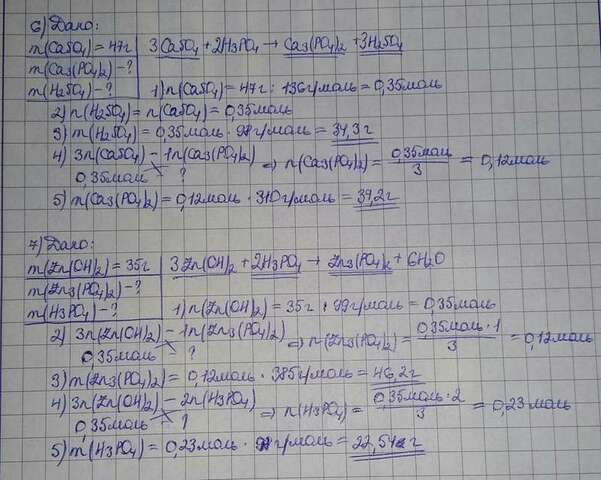 6) Дано:
m(CaSO4) = 47г 3CaSO4 + 2H3PO4 → Ca3(PO4)2 + 3H2SO4
m(Ca3(PO4)2) - ?
m(H2SO4) - ? 1) n(CaSO4) = 47г : 136г/моль = 0,35моль
2) n(H2SO4) = n(CaSO4) = 0,35моль
3) m(H2SO4) = 0,35моль · 98г/моль = 34,3г
4) 3n(CaSO4) - 1n(Ca3(PO4)2) ⇒ n(Ca3(PO4)2) = 0,35моль / 3 = 0,12моль
0,35моль - ?
5) m(Ca3(PO4)2) = 0,12моль · 310г/моль = 37,2г
7) Дано:
m(Zn(OH)2) = 35г 3Zn(OH)2 + 2H3PO4 → Zn3(PO4)2 + 6H2O
m(Zn3(PO4)2) - ?
m(H3PO4) - ? 1) n(Zn(OH)2) = 35г : 99г/моль = 0,35моль
2) 3n(Zn(OH)2) - 1n(Zn3(PO4)2) ⇒ n(Zn3(PO4)2) = 0,35моль · 1 / 3 = 0,12моль
0,35моль - ?
3) m(Zn3(PO4)2) = 0,12моль · 385г/моль = 46,2г
4) 3n(Zn(OH)2) - 2n(H3PO4) ⇒ n(H3PO4) = 0,35моль · 2 / 3 = 0,23моль
0,35моль - ?
5) m(H3PO4) = 0,23моль · г/моль = 22,54г